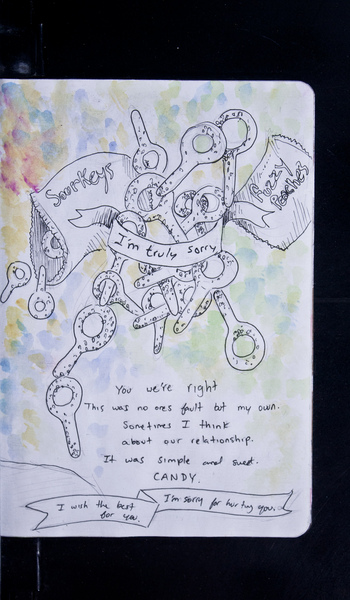 SourKeys
Fuzzy
Peaches
I'm truly sorry
You we're right
This was no ones fault but my own.
Sometimes I think
about our relationship.
It was simple and sweet.
CANDY.
I wish the best
for you.
I'm sorry for hurting you.